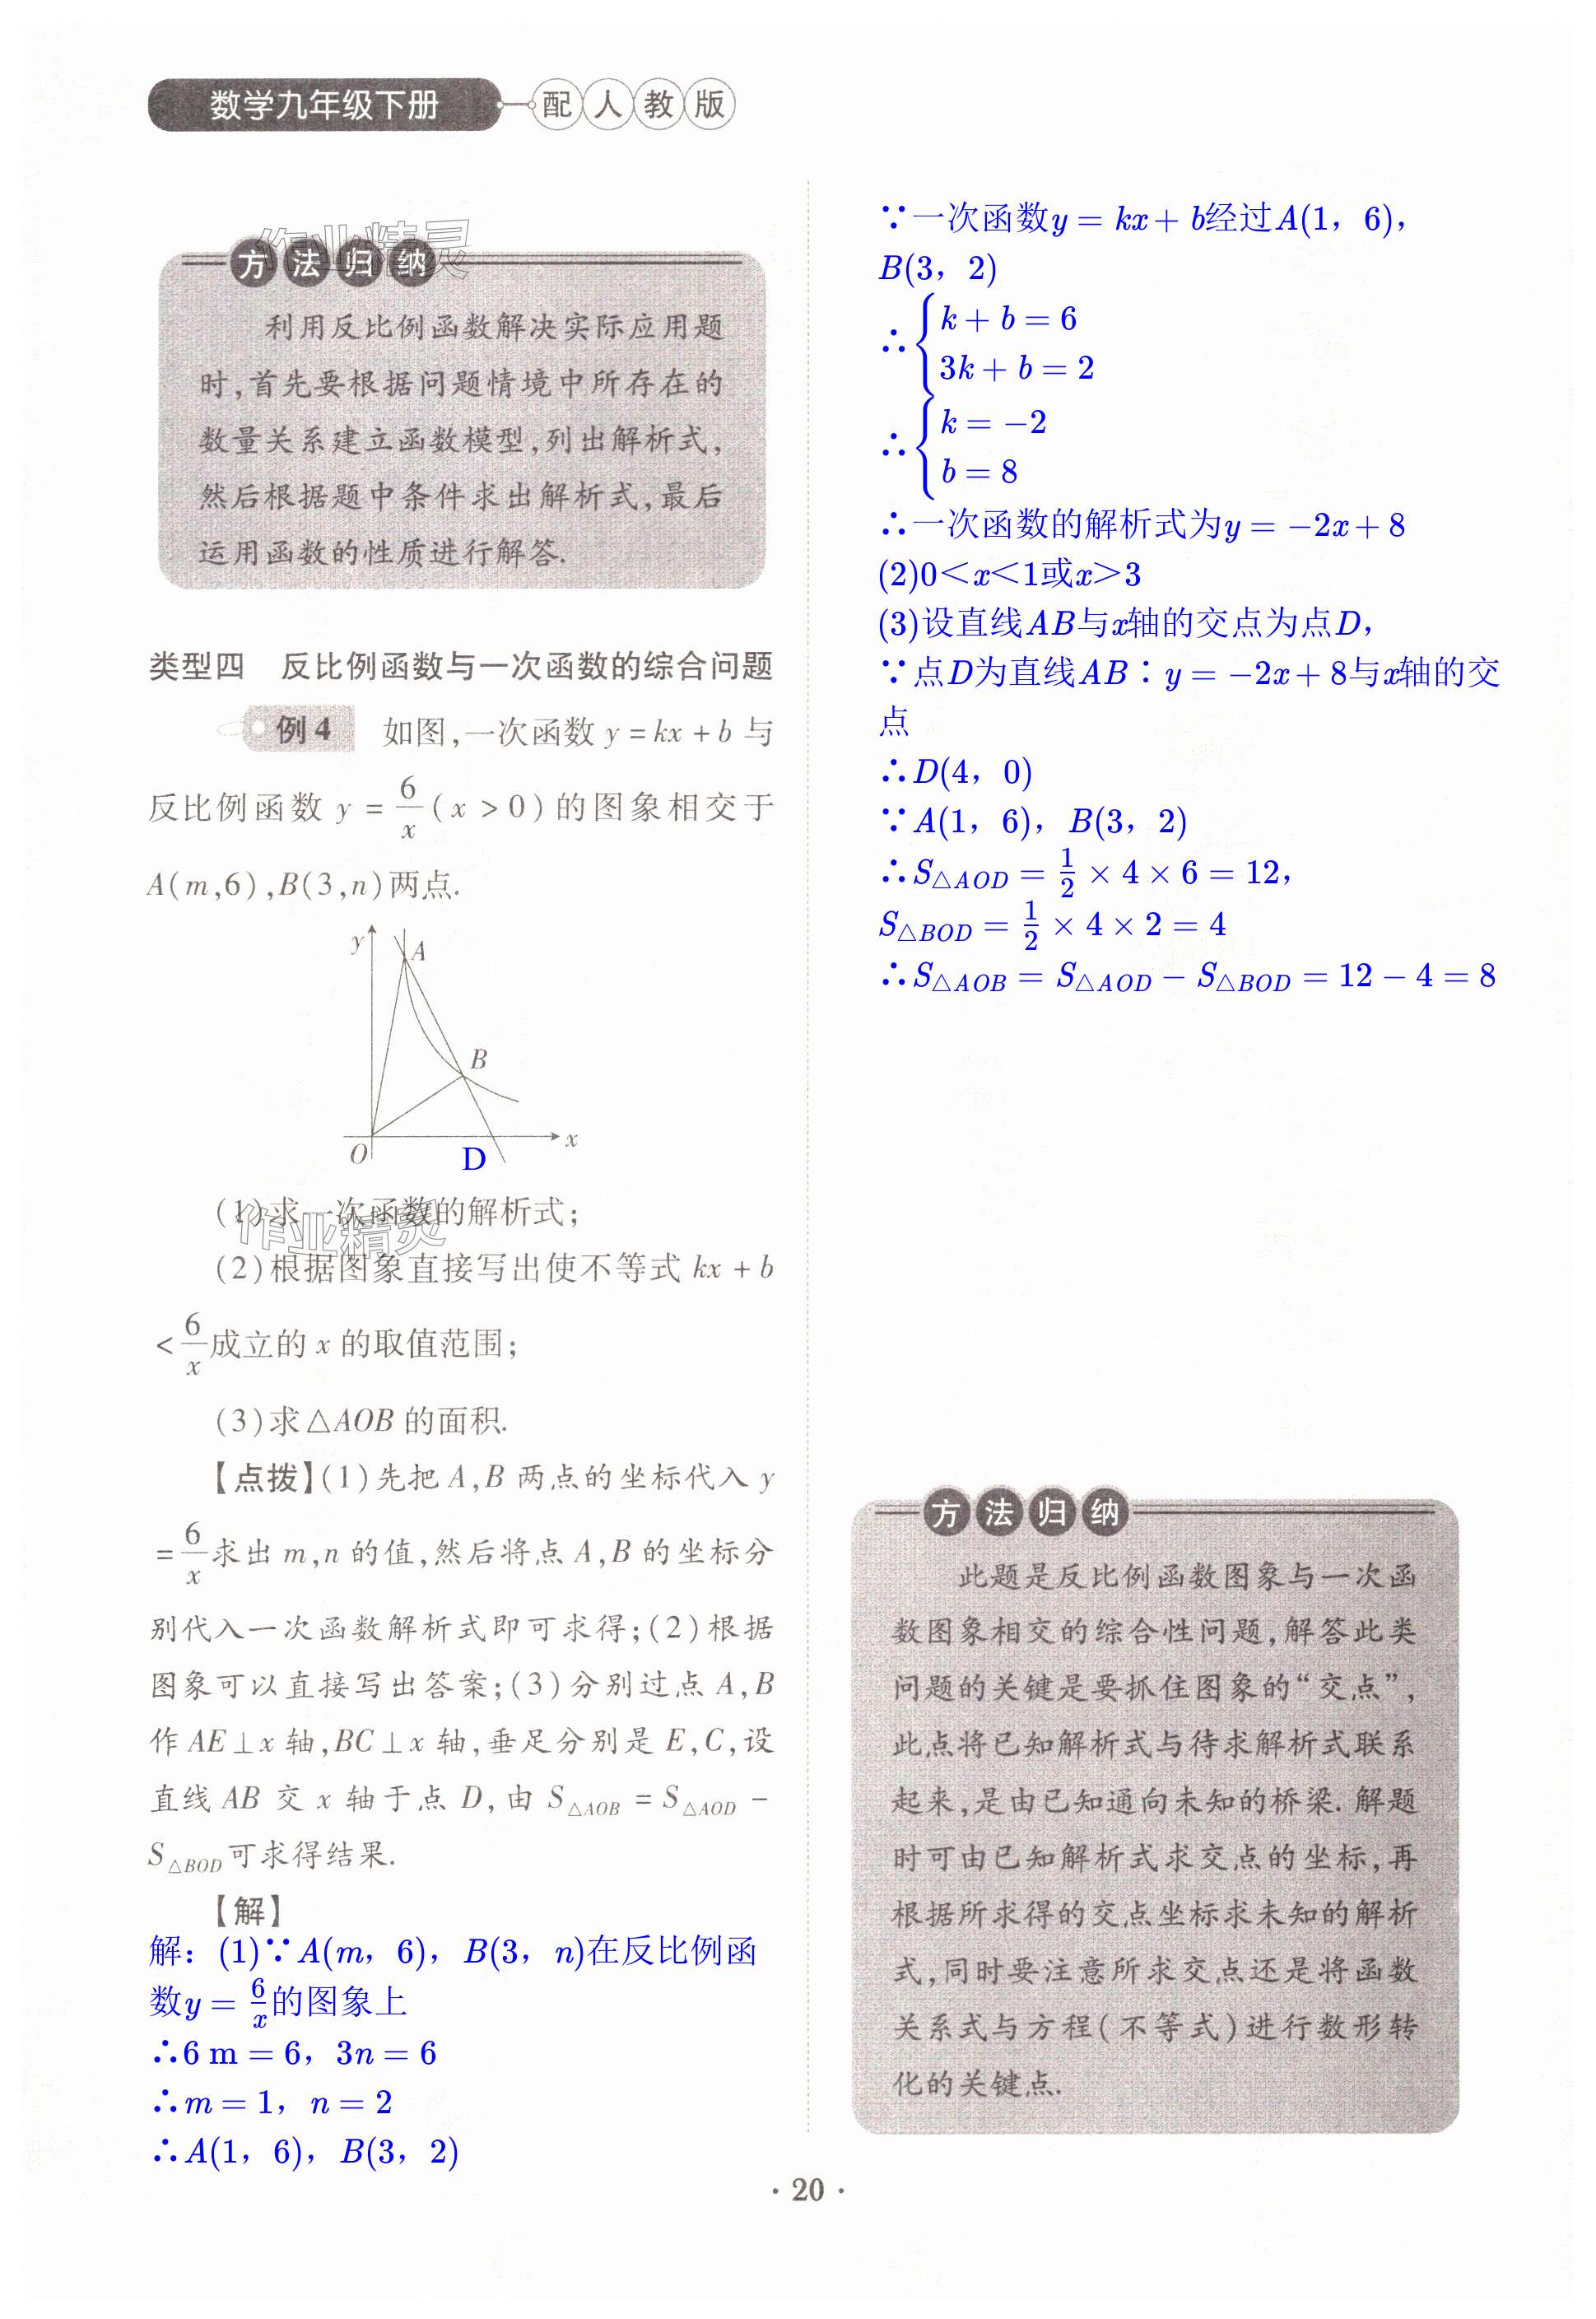 数学九年级下册 配人教版
作业精灵
方法归纳
利用反比例函数解决实际应用题
时,首先要根据问题情境中所存在的
数量关系建立函数模型,列出解析式,
然后根据题中条件求出解析式,最后
运用函数的性质进行解答.
类型四 反比例函数与一次函数的综合问题
例4 如图,一次函数 y = kx + b 与
反比例函数 y = 6/x (x > 0) 的图象相交于
A(m,6),B(3,n)两点.
y
A
B
O
D
x
(1)求一次函数的解析式;
作业精灵
(2)根据图象直接写出使不等式 kx + b
< 6/x 成立的 x 的取值范围;
(3)求△AOB 的面积.
【点拨】(1)先把 A,B 两点的坐标代入 y
= 6/x 求出 m,n 的值,然后将点 A,B 的坐标分
别代入一次函数解析式即可求得;(2)根据
图象可以直接写出答案;(3)分别过点 A,B
作 AE⊥x 轴,BC⊥x 轴,垂足分别是 E,C,设
直线 AB 交 x 轴于点 D,由 S△AOB = S△AOD −
S△BOD可求得结果.
【解】
解：(1)∵A(m，6)，B(3，n)在反比例函
数y = 6/x的图象上
∴6 m = 6，3n = 6
∴m = 1，n = 2
∴A(1，6)，B(3，2)
∵一次函数y = kx + b经过A(1，6)，
B(3，2)
∴{k + b = 6
3k + b = 2
∴{k = −2
b = 8
∴一次函数的解析式为y = −2x + 8
(2)0＜x＜1或x＞3
(3)设直线AB与x轴的交点为点D，
∵点D为直线AB：y = −2x + 8与x轴的交
点
∴D(4，0)
∵A(1，6)，B(3，2)
∴S△AOD = 1/2 × 4 × 6 = 12，
S△BOD = 1/2 × 4 × 2 = 4
∴S△AOB = S△AOD − S△BOD = 12 − 4 = 8
方法归纳
此题是反比例函数图象与一次函
数图象相交的综合性问题,解答此类
问题的关键是要抓住图象的“交点”,
此点将已知解析式与待求解析式联系
起来,是由已知通向未知的桥梁.解题
时可由已知解析式求交点的坐标,再
根据所求得的交点坐标求未知的解析
式,同时要注意所求交点还是将函数
关系式与方程(不等式)进行数形转
化的关键点.
· 20 ·